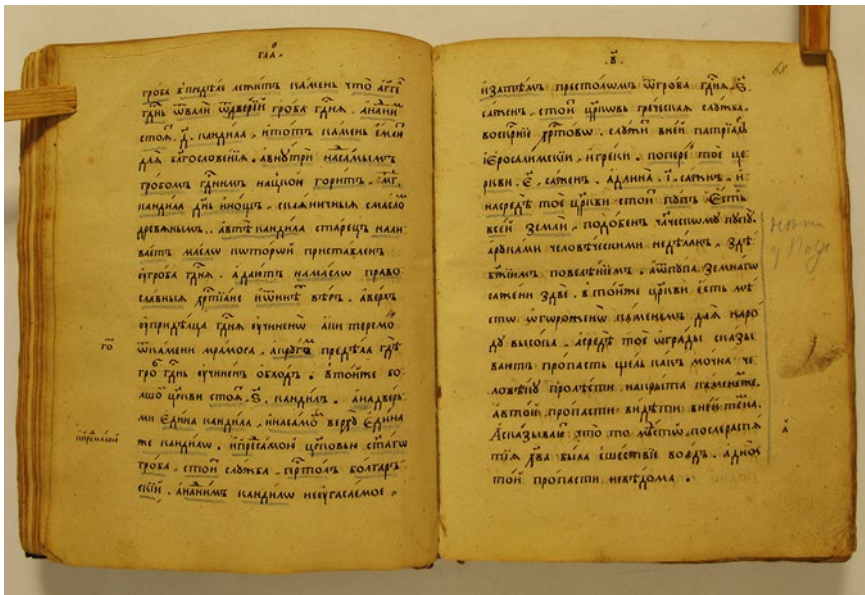 гроба впиделе лежитъ камень что а҆гг҃е
гд҃нь ѿвали ѿдверїй гроба гд҃нѧ . а҆нани
стоѧ . д҃ . кандила , и҆тотъ камень
длѧ бл҃гословенїѧ . а҆внꙋтри насамымъ
гробомъ гд҃нимъ горитъ . мг҃ .
кандила дн҃ь и҆нощъ . смасло
древѧнымъ . а҆втѣ кандила старецъ нали
ваетъ масло который приставленъ
оу҆гроба гд҃нѧ . а҆даютъ намасло право
славныѧ хр҃тїане и҆ѡ҆ниѣ вѣръ . а҆верхъ
оу҆придѣлца гд҃нѧ оу҆чиненъ а҆ки теремо
ѿкамени мрамора , а҆кругъ предѣла гд҃
гро гд҃нь оу҆чиненъ ѡ҆бходъ . втойже бо
лшо цр҃кви стоѧ . ѕ҃ . кандилъ . а҆надверь
ми є҆дина кандила , и҆насамо верхꙋ є҆дина
же кандило , цр҃ковью ст҃аго
гроба . стои слꙋжба . пр҃толъ болгаръ
скїй . а҆наннмъ кандило неоу҆гаслемое .
68
и҆затѣмъ престоломъ ѿгроба гд҃нѧ . ѕ҃ .
саженъ . стои цр҃ковь греческаѧ слꙋжба .
воскр҃нїе хр҃това . слꙋжи вней патрїа
і҆еросалимскїи . и҆греки . попере тое це
ркви . є҃ . саженъ . а҆длина . і҃ . саженъ . и҆
насредѣ тое цр҃кви стои пꙋпъ є҆сть
всей земли , подобенъ чл҃ческомꙋ пꙋпꙋ .
арꙋками человѣческими недѣланъ . здѣ
бж҃їимъ повелѣнїемъ . а҆ѿпꙋпа земнаго
сажени здве . втойже цр҃кви є҆сть мѣ
сто ѡ҆горожено каменемъ длѧ наро
дꙋ высока . а҆средѣ тое ѡ҆грады сказы
ваютъ пропасть щель какъ мочна че
ловѣкꙋ пролѣсти накрыта каменемже .
а҆втой пропасти видѣти вней тѣна .
а҆сказываю что то мѣсто послераспѧ
тїѧ хв҃а была сшествїе воадъ . а҆днꙋ
той пропасти невѣдома .